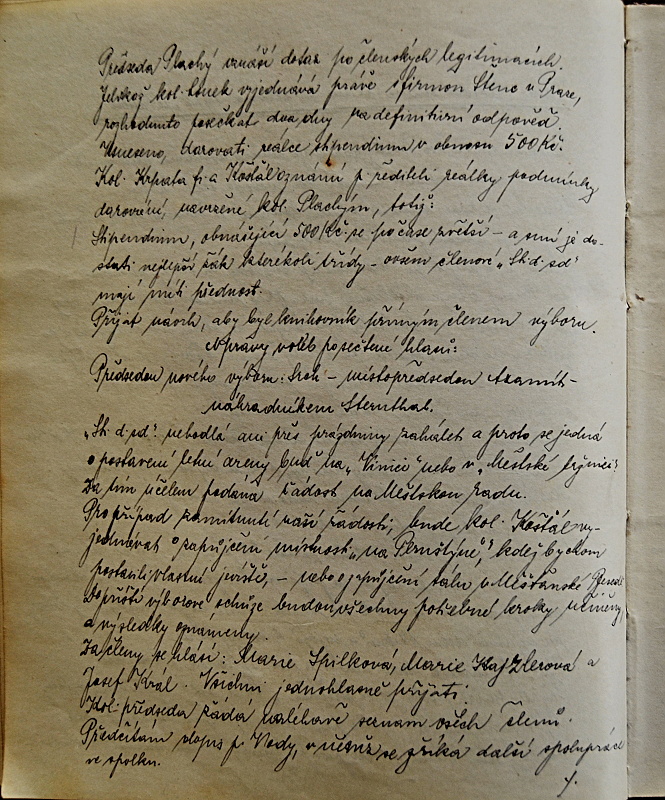 Předseda Plachý vznáší dotaz po členských legitimacích.
Jelikož kol. vyjednává právě s firmou Štenc v Praze,
rozhodnuto posečkat dva dny na definitivní odpověď.
Usneseno, darovati reálce stipendium v obnosu 500 Kč.
Kol. Krpata fi. a Košťál oznámí p. řediteli reálky podmínky
darování, navržené kol. Plachým, totiž:
Stipendium, obnášející 500 Kč. se počase zvětší – a smí je do-
stati nejlepší žák kterékoli třídy – ovšem členové „St. d. sd“
mají míti přednost.
Přijat návrh, aby byl knihovník přímým členem výboru.
Opravy voleb posečtení hlasů:
Předsedou nového výboru: – místopředsedou Azamit –
náhradníkem Sternthal.
„St. d. sd“. nehodlá ani přes prázdniny zahálet a proto se jedná
o postavení letní areny buď na „Vinici“ nebo v „Městské
Za tím účelem podána žádost na Městskou radu.
Pro případ zamítnutí naší žádosti, bude kol. Košťál vy-
jednávat o zapůjčení místnosti „na Pernštýně,“ kdež bychom
postavili vlastní jeviště, – nebo o zapůjčení sálu v Měšťanské Besedě
Do příští výborové schůze budou všechny potřebné kroky učiněny,
a výsledky oznámeny.
Za členy se hlásí: Marie Spilková, Marie Hajzlerová a
Josef Král. Všichni jednohlasně přijati.
Kol. předseda žádá naléhavě seznam všech členů.
Předčítám dopis p. Vody, v němž se zříká další spolupráce
ve spolku.